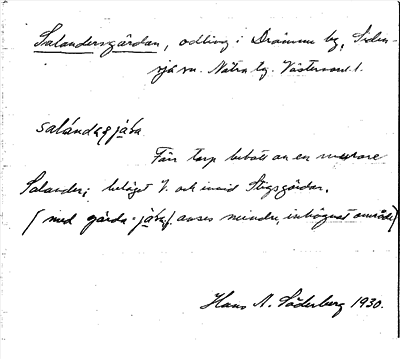 Salandersgärdan, odling i Drömme by, Siden-
sjö sn. Nätra tg. Västernorrl. l.
salándaş jäʹa
Förr torp bebott av en murare
Salander; beläget V. och invid Stigsgärdan.
(med gärda - anses mindre, inhägnat område)
Hans A. Söderberg 1930.